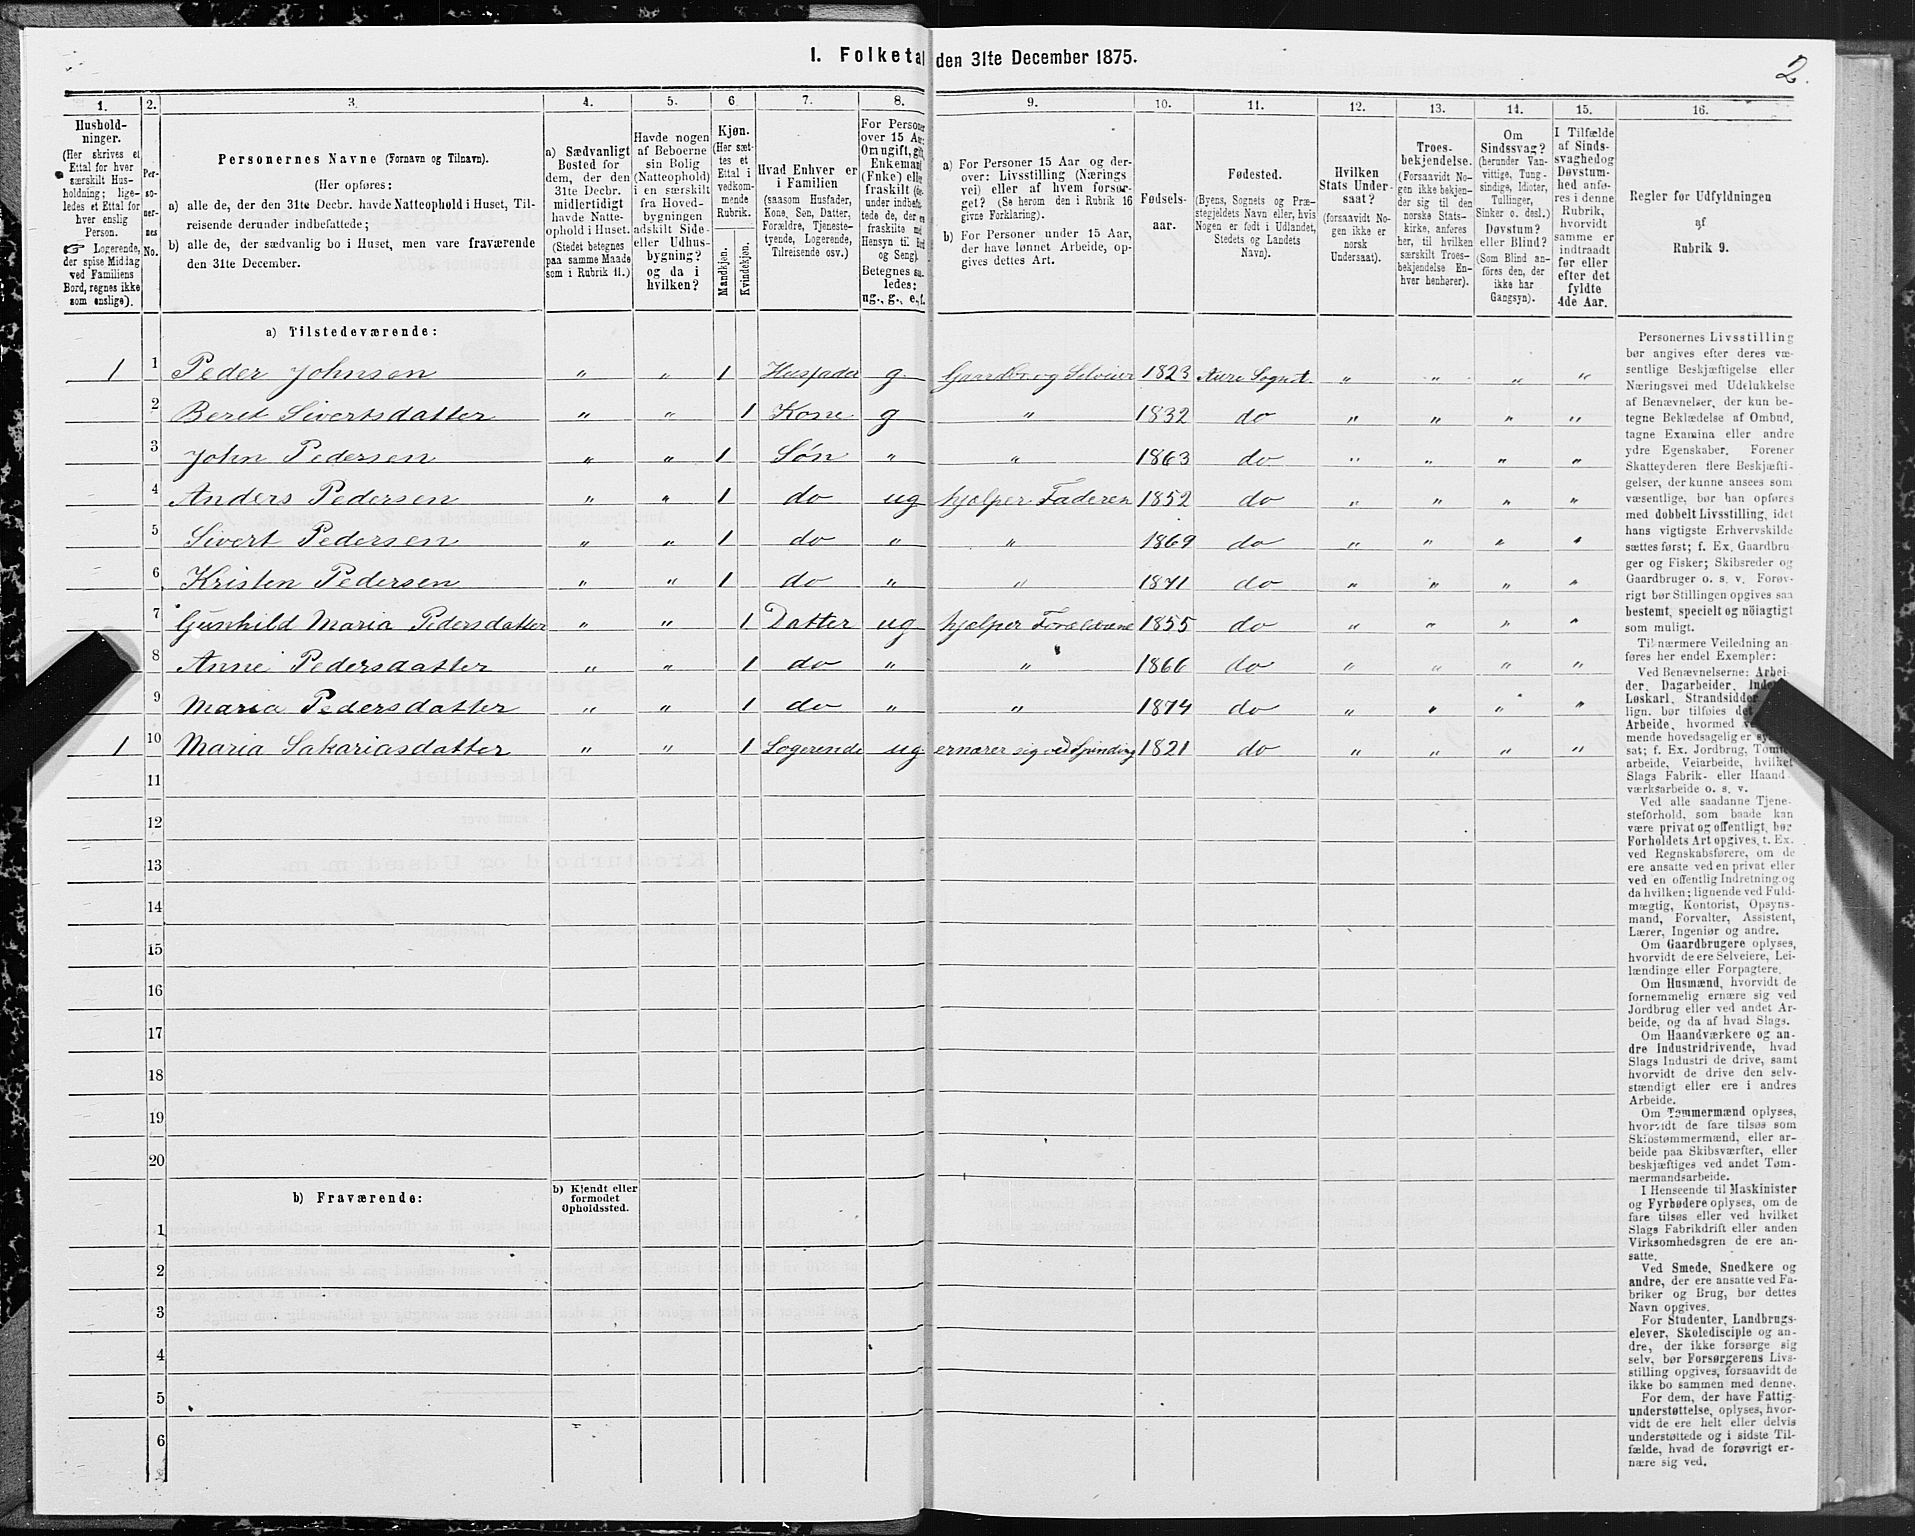 1. Folketal den 31te December 1875.
2.
1.
Hushold-
ninger.
(Her skrives et
Ettal for hver
særskilt Hus-
holdning; lige-
ledes et Ettal for
hver enslig
Person.
☞ Logerende,
der spise Middag
ved Familiens
Bord, regnes ikke
som enslige).
2.
Per-
so-
ner-
nes
No.
3.
Personernes Navne (Fornavn og Tilnavn).
(Her opføres:
a) alle de, der den 31te Decbr. havde Natteophold i Huset, Til-
reisende derunder indbefattede;
b) alle de, der sædvanlig bo i Huset, men vare fraværende
den 31te December.
4.
a) Sædvanligt
Bosted for
dem, der den
31te Decbr.
midlertidigt
havde Natte-
ophold i Huset.
(Stedet betegnes
paa samme Maade
som i Rubrik 11.)
5.
Havde nogen
af Beboerne
sin Bolig
(Natteophold)
i en særskilt
fra Hoved-
bygningen
adskilt Side-
eller Udhus-
bygning?
og da i
hvilken?
6.
Kjøn.
(Her sæt-
tes et
Ettal i
vedkom-
mende
Rubrik.
Mandkjøn.
Kvindekjøn.
7.
Hvad Enhver er
i Familien
(saasom Husfader,
Kone, Søn, Datter,
Forældre, Tjeneste-
tyende, Logerende,
Tilreisende osv.)
8.
For Personer
over 15 Aar:
Om ugift, gift,
Enkemand
(Enke) eller
fraskilt
Betegnes saa-
ledes:
ug., g., e., f.
9.
a) For Personer 15 Aar og der-
over: Livsstilling (Nærings-
vei) eller af hvem forsør-
get? (Se herom den i Rubrik 16
givne Forklaring).
b) For Personer under 15 Aar,
der have lønnet Arbeide, op-
gives dettes Art.
10.
Fødsels-
aar.
11.
Fødested.
(Byens, Sognets og Præ-
stegjeldets Navn eller, hvis
Nogen er født i Udlandet,
Stedets og Landets
Navn).
12.
Hvilken
Stats Under-
saat?
(forsaavidt No-
gen ikke er
norsk
Undersaat).
13.
Troes-
bekjendelse.
(Forsaavidt No-
gen ikke bekjen-
der sig til den
norske Stats-
kirke, anføres
her, til hvilken
særskilt Troes-
bekjendelse En-
hver henhører).
14.
Om
Sindssvag?
(herunder Van-
vittige, Tung-
sindige, Idioter,
Tullinger,
Sinker o. desl.)
Døvstum?
eller Blind?
(Som Blind an-
føres den, der
ikke har
Gangsyn).
15.
I Tilfælde
af Sinds-
svaghed og
Døvstum-
hed anfø-
res i denne
Rubrik,
hvorvidt
samme er
indtraadt
før eller
efter det
fyldte
4de Aar.
16.
Regler for Udfyldningen
af
Rubrik 9.
a) Tilstedeværende:
1 1 Peder Johnsen " " 1 Husfader g. Gaardbr. og Selveier 1823 Aure Sogn " " " "
2 Beret Sivertsdatter " " 1 Kone g " 1832 do " " " "
3 John Pedersen " " 1 Søn " " 1863 do " " " "
4 Anders Pedersen " " 1 do ug hjelper Faderen 1852 do " " " "
5 Sivert Pedersen " " 1 do " " 1869 do " " " "
6 Kristen Pedersen " " 1 do " " 1871 do " " " "
7 Gunhild Maria Pedersdatter " " 1 Datter ug hjelper Forældrene 1855 do " " " "
8 Anne Pedersdatter " " 1 do " " 1866 do " " " "
9 Maria Pedersdatter " " 1 do " " 1874 do " " " "
1 10 Maria Sakariasdatter " " 1 Logerende ug ernærer sig ved Spinding 1821 do " " " "
11
12
13
14
15
16
17
18
19
20
b) Fraværende:
b) Kjendt eller
formodet
Opholdssted.
1
2
3
4
5
6
Personernes Livsstilling
bør angives efter deres væ-
sentlige Beskjæftigelse eller
Næringsvei med Udelukkelse
af Benævnelser, der kun be-
tegne Beklædelse af Ombud,
tagne Examina eller andre
ydre Egenskaber. Forener
Skatteyderen flere Beskjæfti-
gelser, der kunne ansees som
væsentlige, bør han opføres
med dobbelt Livsstilling, idet
hans vigtigste Erhvervskilde
sættes først; f. Ex. Gaardbru-
ger og Fisker; Skibsreder og
Gaardbruger o. s. v. Forøv-
rigt bør Stillingen opgives saa
bestemt, specielt og nöiagtigt
som muligt.
Til nærmere Veiledning an-
føres her endel Exempler:
Ved Benævnelserne: Arbei-
der, Dagarbeider,
Løskarl, Strandsidder
lign. bør tilføies
Arbeide, hvormed
mende hovedsagelig er
sat; f. Ex. Jordbrug, Tomte-
arbeide, Veiarbeide, hvilket
Slags Fabrik- eller Haand-
værksarbeide o. s. v.
Ved alle saadanne Tjene-
steforhold, som baade kan
være privat og offentligt, bør
Forholdets Art opgives, t. Ex.
ved Regnskabsførere, om de
ere ansatte ved en privat eller
ved en offentlig Indretning og
da hvilken; lignende ved Fuld-
mægtig, Kontorist, Opsyns-
mand, Forvalter, Assistent,
Lærer, Ingeniør og andre.
Om Gaardbrugere oplyses,
hvorvidt de ere Selveiere, Lei-
lændinge eller Forpagtere.
Om Husmænd, hvorvidt de
fornemmelig ernære sig ved
Jordbrug eller ved andet Ar-
beide, og da af hvad Slags.
Om Haandværkere og an-
dre Industridrivende, hvad
Slags Industri de drive, samt
hvorvidt de drive den selv-
stændigt eller ere i andres
Arbeide.
Om Tømmermænd oplyses,
hvorvidt de fare tilsøs som
Skibstømmermænd, eller ar-
beide paa Skibsværfter, eller
beskjæftiges ved andet Tøm-
mermandsarbeide.
I Henseende til Maskinister
og Fyrbødere oplyses, om de
fare tilsøs eller ved hvilket
Slags Fabrikdrift eller anden
Virksomhedsgren de ere an-
satte.
Ved Smede, Snedkere og
andre, der ere ansatte ved Fa-
briker og Brug, bør dettes
Navn opgives.
For Studenter, Landbrugs-
elever, Skoledisciple og an-
dre, der ikke forsørge sig
selv, bør Forsørgerens Livs-
stilling opgives, forsaavidt de
ikke bo sammen med denne.
For dem, der have Fattig-
understøttelse, oplyses, hvor-
vidt de ere helt eller delvis
understøttede og i sidste Til-
fælde, hvad de forøvrigt er-
nære sig ved.